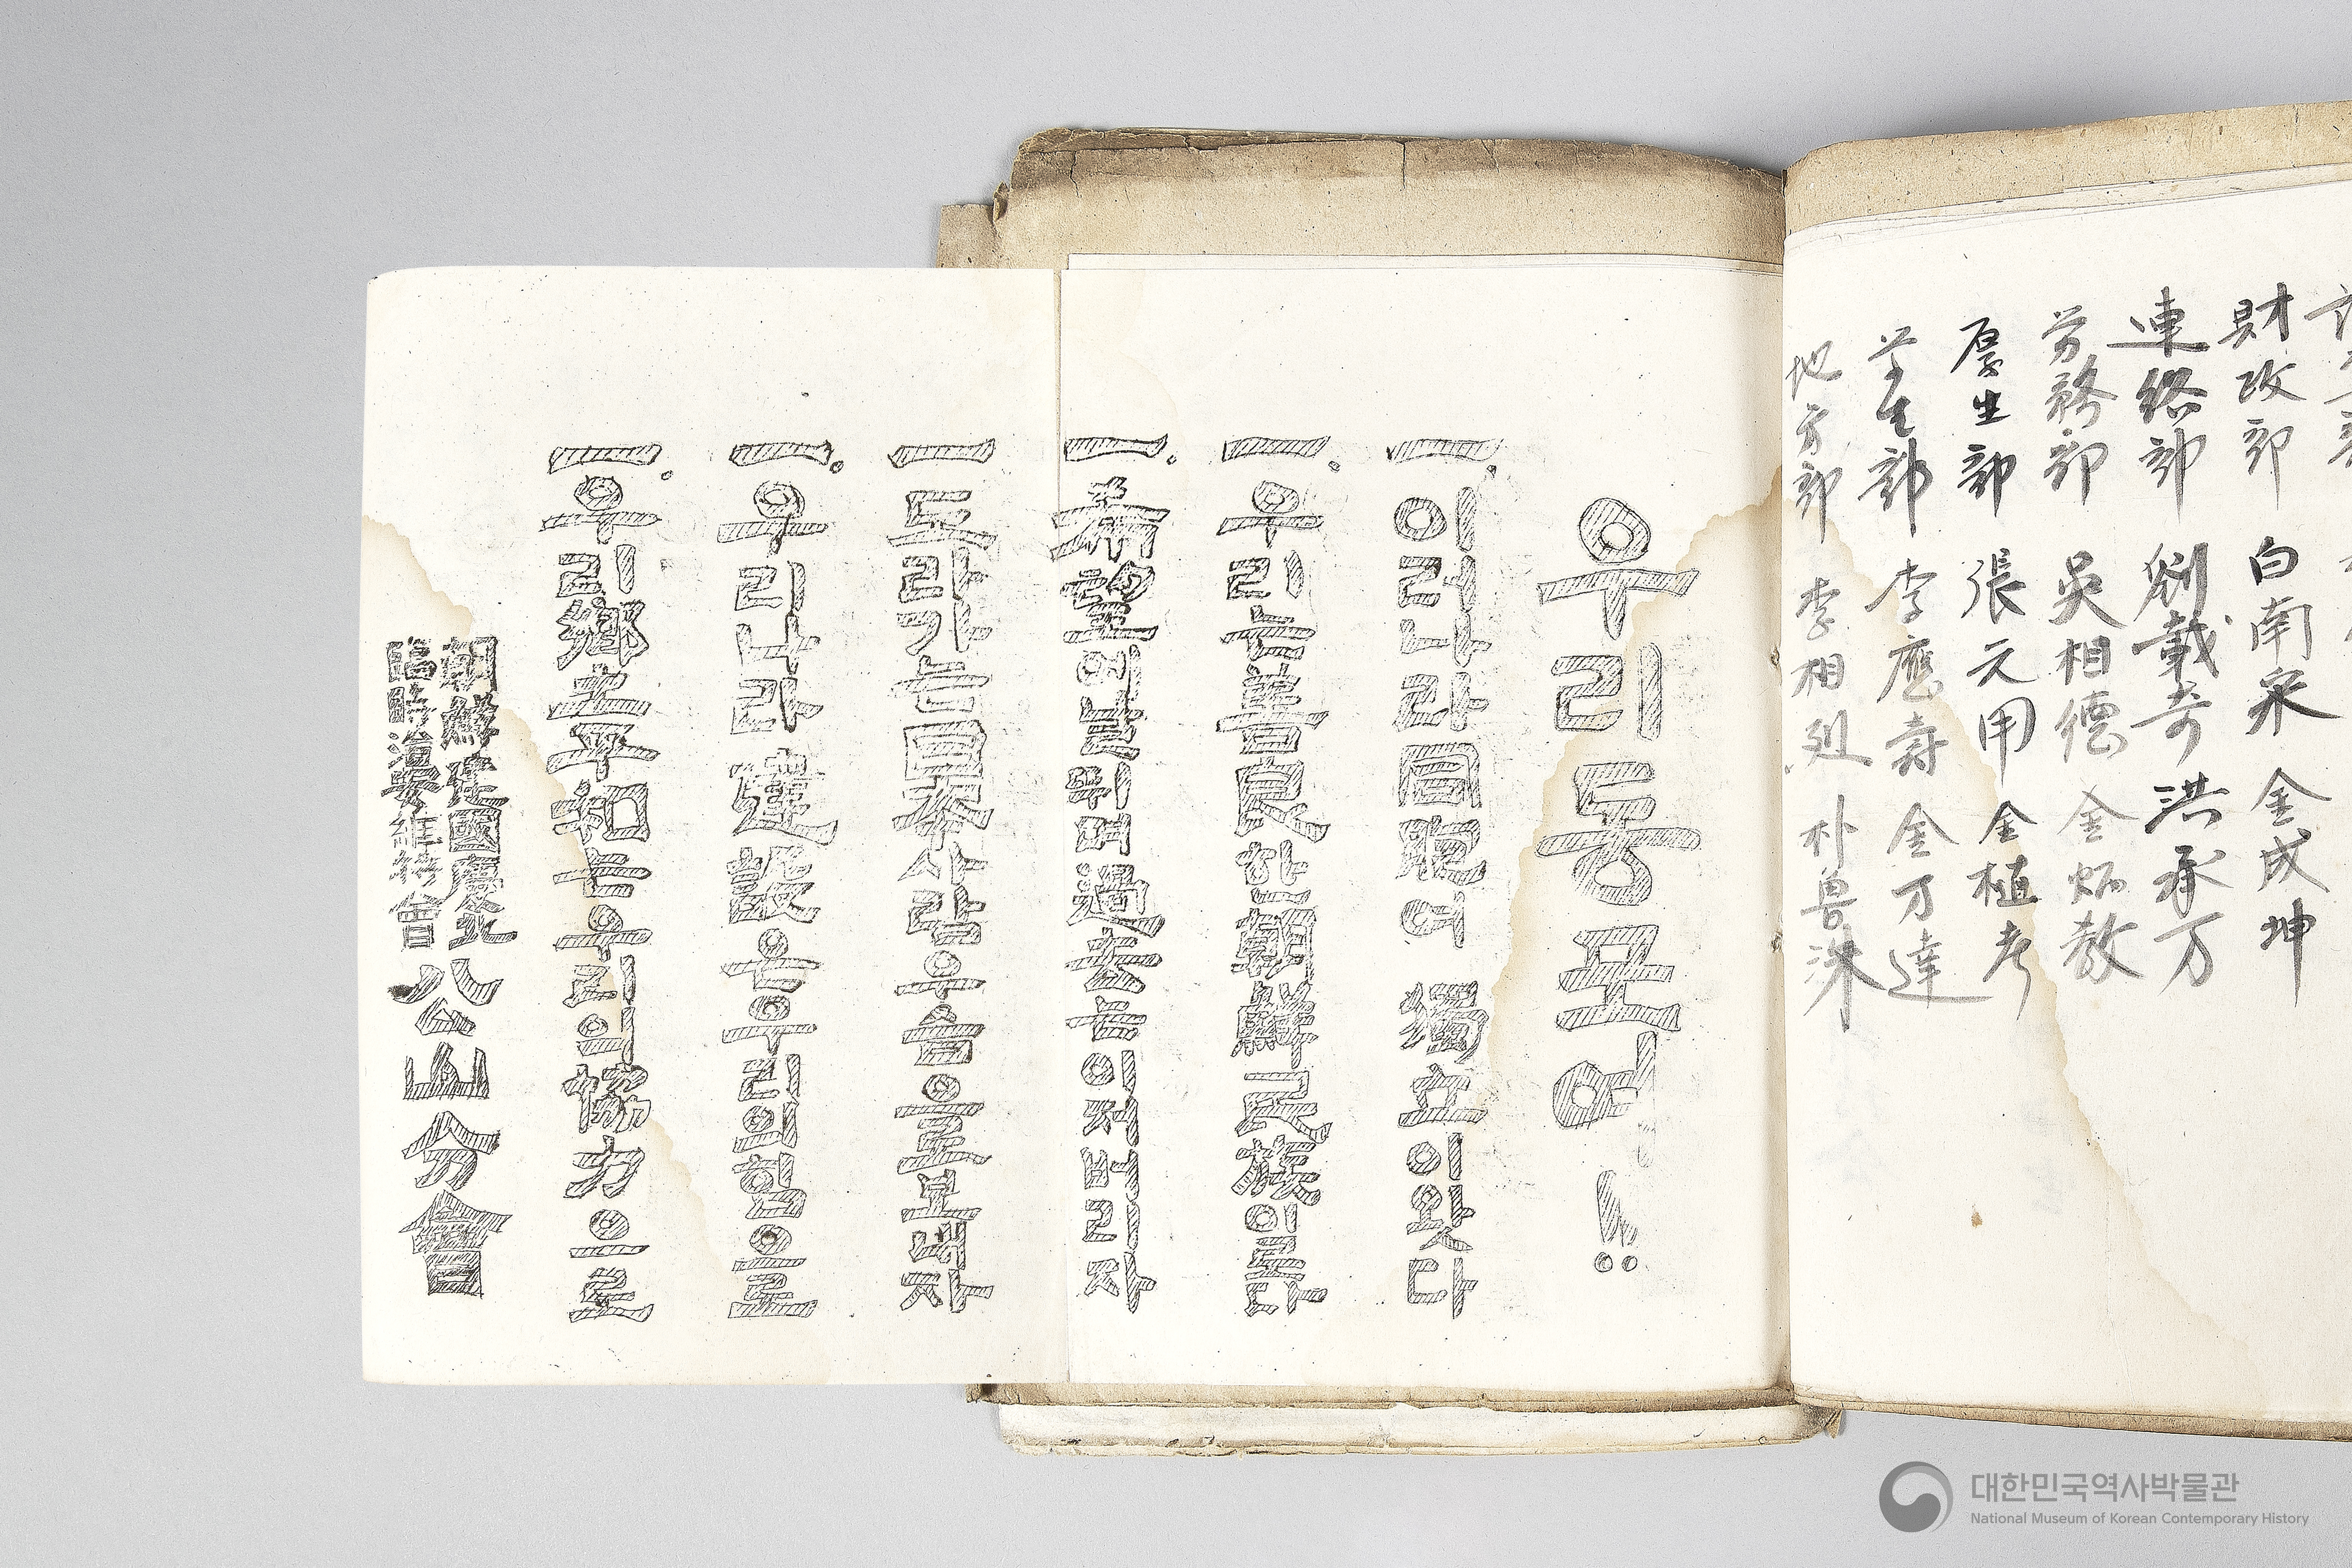 財政部 白南 金成坤
連絡部 劉載奇 洪承万
労務部 吳相德 金炳教
厚生部 張元甲 金植
学生部 李應壽 金万達
地方部 李相烈 朴
우리동무여!!
一. 이러나라同胞여 獨立이왓다
一. 우리는善良한朝鮮民族이로다
一. 希望에날뛰며過去는이저버리자
一 도라가는日本사람우슴으로보내자
一. 우리나라建設은우리의힘으로
一. 우리鄕土平和는우리의協力으로
朝鮮建國慶北
臨時治安維持會
八公山分會
대한민국역사박물관
National Museum of Korean Contemporary History